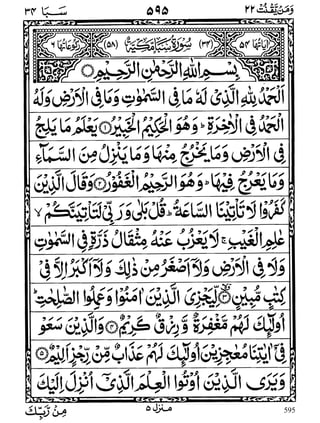 وَمَنْ يَّقْنُتْ ٢٢ ٥٩٥ سَبَا ٣٤
اٰيَاتُهَا ٥٤ (٣٤) سُوْرَةُ سَبَاٍ مَكِّيَّةٌ (٥٨) رُكُوْعَاتُهَا ٦
بِسْمِ اللّٰهِ الرَّحْمٰنِ الرَّحِيْمِ
اَلْحَمْدُ لِلّٰهِ الَّذِيْ لَهٗ مَا فِي السَّمٰوٰتِ وَمَا فِي الْاَرْضِ وَلَهُ
الْحَمْدُ فِي الْاٰخِرَةِ ؕ وَهُوَ الْحَكِيْمُ الْخَبِيْرُ ۝۱ يَعْلَمُ مَا يَلِجُ
فِي الْاَرْضِ وَمَا يَخْرُجُ مِنْهَا وَمَا يَنْزِلُ مِنَ السَّمَآءِ
وَمَا يَعْرُجُ فِيْهَا ؕ وَهُوَ الرَّحِيْمُ الْغَفُوْرُ ۝۲ وَقَالَ الَّذِيْنَ
كَفَرُوْا لَا تَاْتِيْنَا السَّاعَةُ ؕ قُلْ بَلٰى وَرَبِّيْ لَتَاْتِيَنَّكُمْ ۙ
عٰلِمِ الْغَيْبِ ۚ لَا يَعْزُبُ عَنْهُ مِثْقَالُ ذَرَّةٍ فِي السَّمٰوٰتِ
وَلَا فِي الْاَرْضِ وَلَآ اَصْغَرُ مِنْ ذٰلِكَ وَلَآ اَكْبَرُ اِلَّا فِيْ
كِتٰبٍ مُّبِيْنٍ ۝۳ لِّيَجْزِيَ الَّذِيْنَ اٰمَنُوْا وَعَمِلُوا الصّٰلِحٰتِ ؕ
اُولٰٓئِكَ لَهُمْ مَّغْفِرَةٌ وَّرِزْقٌ كَرِيْمٌ ۝۴ وَالَّذِيْنَ سَعَوْ
فِيْٓ اٰيٰتِنَا مُعٰجِزِيْنَ اُولٰٓئِكَ لَهُمْ عَذَابٌ مِّنْ رِّجْزٍ اَلِيْمٌ ۝۵
وَيَرَى الَّذِيْنَ اُوْتُوا الْعِلْمَ الَّذِيْٓ اُنْزِلَ اِلَيْكَ
595 منزل ٥ مِنْ رَّبِّكَ